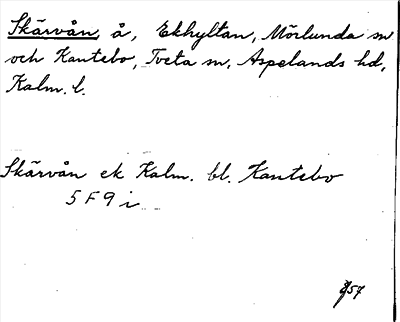 Skärvån, å, Ekhyltan, Mörlunda sn
och Kantebo, Tveta sn, Aspelands hd,
Kalm. l.
Skärvån ek Kalm. bl. Kantebo
5 F 9 i
57